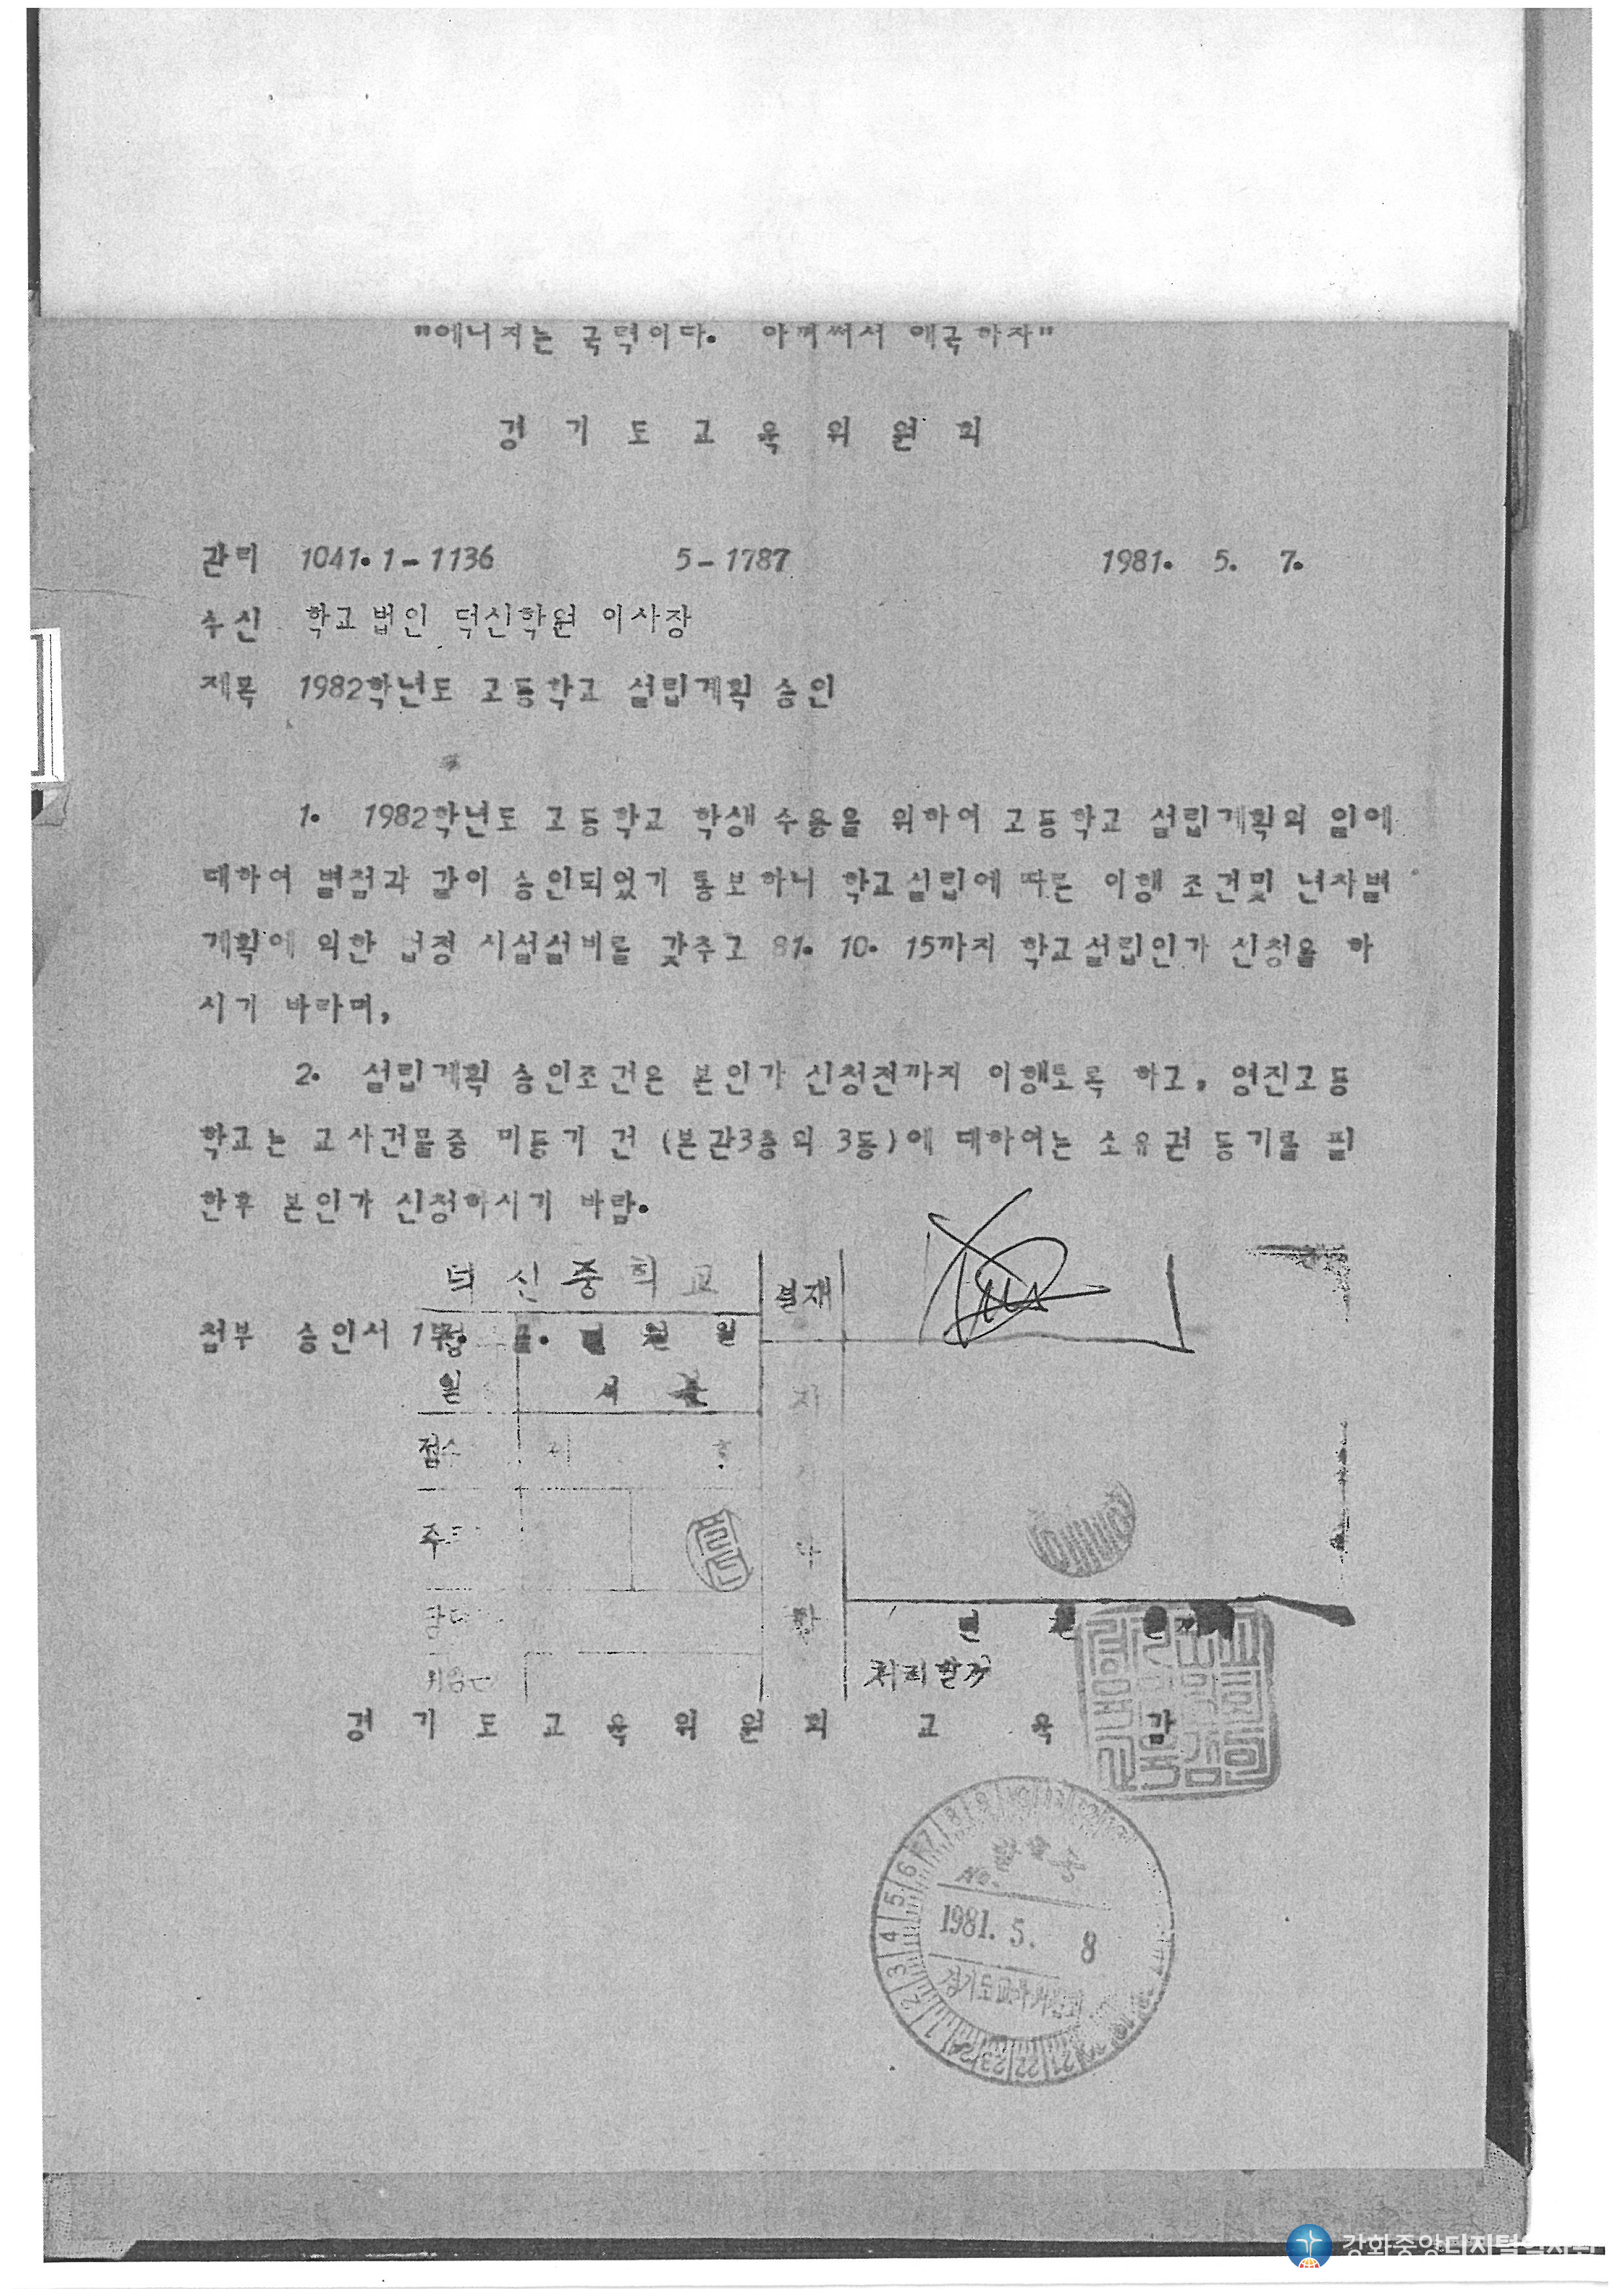 "에너지는 국력이다. 아껴써서 애국하자"
경 기 도 교 육 위 원 회
관리 1041.1-1136 5-1787 1981. 5. 7.
수신 학교법인 덕신학원 이사장
제목 1982학년도 고등학교 설립계획 승인
1. 1982학년도 고등학교 학생 수용을 위하여 고등학교 설립계획의 일에
대하여 별첨과 같이 승인되었기 통보하니 학교설립에 따른 이행 조건및 년차별
계획에 의한 법정 시설설비를 갖추고 81. 10. 15까지 학교설립인가 신청을 하
시기 바라며,
2. 설립계획 승인조건은 본인가 신청전까지 이행토록 하고, 영진고등
학교는 교사건물중 미등기 건 (본관3층외 3동)에 대하여는 소유권 등기를 필
한후 본인가 신청하시기 바람.
덕 신 중 학 교
첨부 승인서 1부. 끝. 년 월 일
접수 제 호
년 월
처리할것
경 기 도 교 육 위 원 회 교 육 감
1981. 5. 8
강화중앙디지털역사관